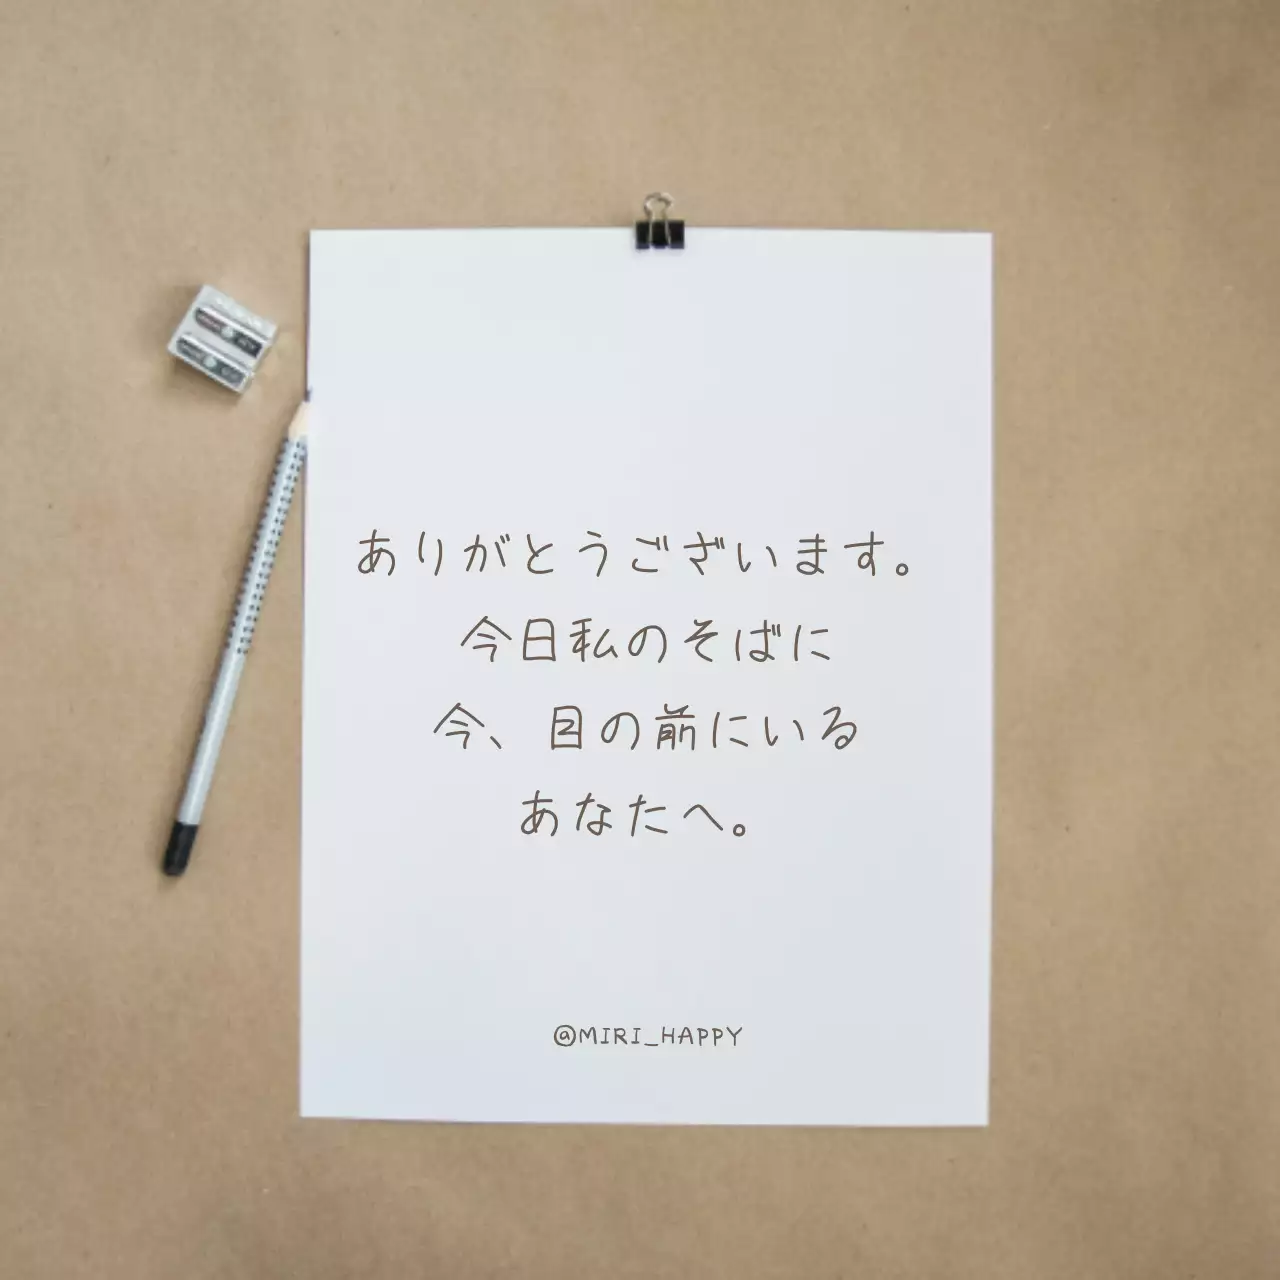 ありがとうございます。
今日私のそばに
今、目の前にいる
あなたへ。
@MIRI_HAPPY